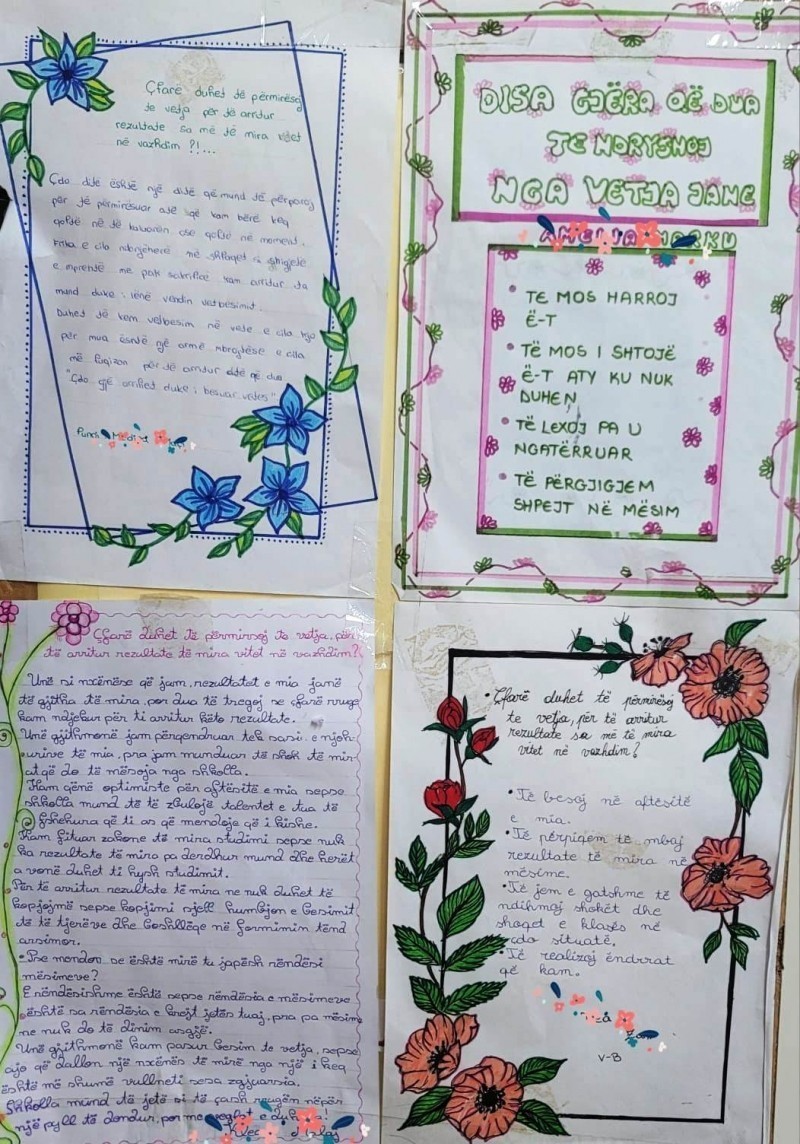 Çfarë duhet të përmirësoj
te vetja për të arritur
rezultate sa më të mira vitet
në vazhdim ?!...
Çdo ditë është një ditë që mund të përpiqij
për të përmirësuar atë që kam bërë keq
qoftë në të kaluarën ose qoftë në moment.
Frika e cila ndonjëherë më shfaqet si
e mprentë me pak sakrificë kam arritur ta
mund duke i lënë vendin vetbesimit.
Duhet të kem vetbesim në vete e cila kjo
për mua është një armë mbrojtëse e cila
më fuqizon për të arritur atë që dua
"Çdo gjë arrihet duke i besuar vetes"
DISA GJËRA QË DUA
TE NDRYSHOJ
NGA VETJA JANE
• TE MOS HARROJ
Ë-T
• TË MOS I SHTOJË
Ë-T ATY KU NUK
DUHEN
• TË LEXOJ PA U
NGATËRRUAR
• TË PËRGJIGJEM
SHPEJT NË MËSIM
Çfarë duhet të përmirsoj te vetja, për
të arritur rezultate të mira vitet në vazhdim?
Unë si nxënëse që jam, rezultatet e mia janë
të gjitha të mira, por dua të tregoj se çfarë rruge
kam ndjekur për ti arritur këto rezultate.
Unë gjithmonë jam përqendruar tek sasi e njoh-
urive të mia, pra jam munduar të shoh të mir
at që do të mësoja nga shkolla.
Kam qënë optimiste për aftësitë e mia sepse
shkolla mund të të zbulojë talentet e tua të
fshehura që ti as që mendoje që i kishe.
Kam fituar zakone të mira studimi sepse nuk
ka rezultate të mira pa derdhur mund dhe herët
a vonë duhet ti hysh studimit.
Për të arritur rezultate të mira ne nuk duhet të
kopjojmë sepse kopjimi sjell humbjen e besimit
të të tjerëve dhe boshllëqe në formimin tënd
arsimor.
• Pse mendon se është mirë tu japësh rëndësi
mësimeve?
E rëndësishme është sepse rëndësia e mësimeve
është sa rëndësia e krejt jetës tuaj, pra pa mësime
ne nuk do të dinim asgjë.
Unë gjithmonë kam pasur besim te vetja, sepse
ajo që dallon një nxënës të mirë nga një i keq
është më shumë vullneti sesa zgjuarsia.
Shkolla mund të jetë si të çash rrugën nëpër
një pyll të dendur, por me
• Çfarë duhet të përmirësoj
te vetja, për të arritur
rezultate sa më të mira
vitet në vazhdim?
• Të besoj në aftësitë
e mia.
• Të përpiqem të mbaj
rezultate të mira në
mësime.
• Të jem e gatshme të
ndihmoj shokët dhe
shoqet e klasës në
çdo situatë.
• Të realizoj ëndrrat
që kam.
V-B